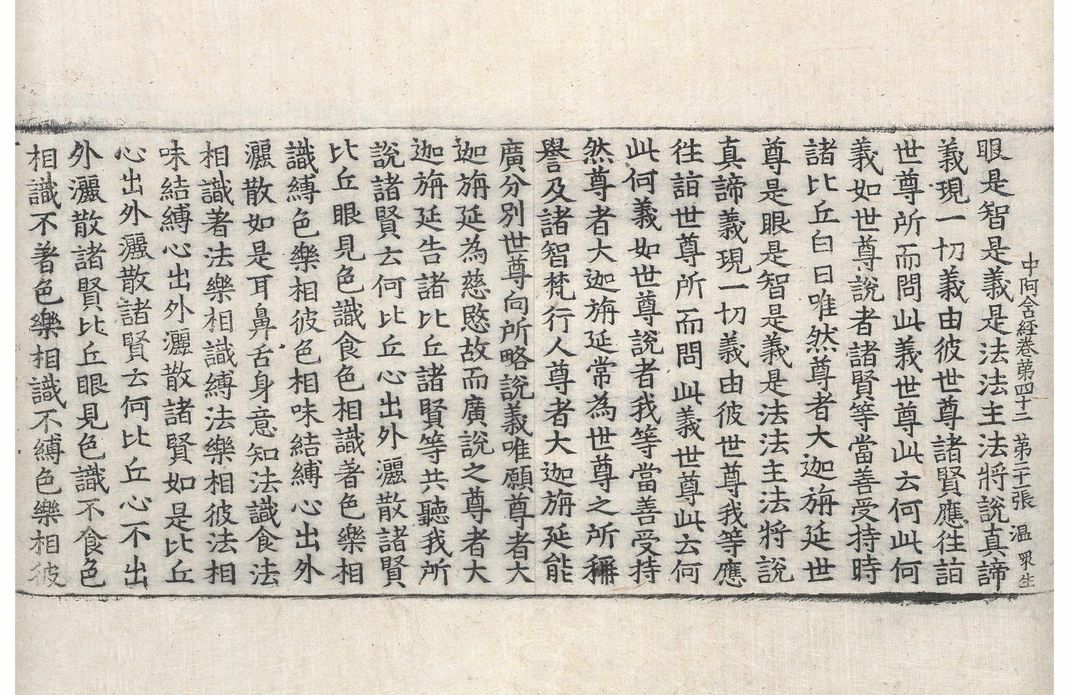 中阿含経卷第四十二 第二十張 溫 衆生
眼是智是義是法法主法將說真諦
義現一切義由彼世尊諸賢應往詣
世尊所而問此義世尊此云何此何
義如世尊說者諸賢等當善受持時
諸比丘白曰唯然尊者大迦旃延世
尊是眼是智是義是法法主法將說
真諦義現一切義由彼世尊我等應
往詣世尊所而問此義世尊此云何
此何義如世尊說者我等當善受持
然尊者大迦旃延常為世尊之所稱
譽及諸智梵行人尊者大迦旃延能
廣分別世尊向所略說義唯願尊者大
迦旃延為慈愍故而廣說之尊者大
迦旃延告諸比丘諸賢等共聽我所
說諸賢云何比丘心出外灑散諸賢
比丘眼見色識食色相識著色樂相
識縛色樂相彼色相味結縛心出外
灑散如是耳鼻舌身意知法識食法
相識著法樂相識縛法樂相彼法相
味結縛心出外灑散諸賢如是比丘
心出外灑散諸賢云何比丘心不出
外灑散諸賢比丘眼見色識不食色
相識不著色樂相識不縛色樂相彼